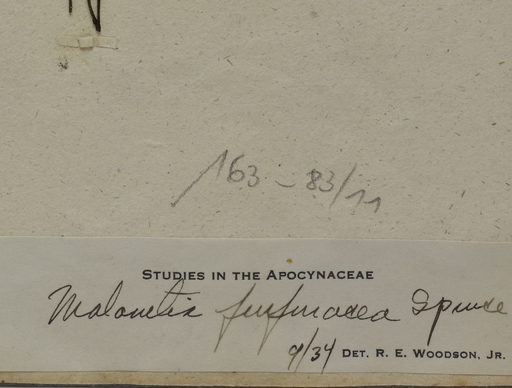 163 - 83/11
STUDIES IN THE APOCYNACEAE
Malouetia furfuracea Spruce
9/34 DET. R. E. WOODSON, JR.